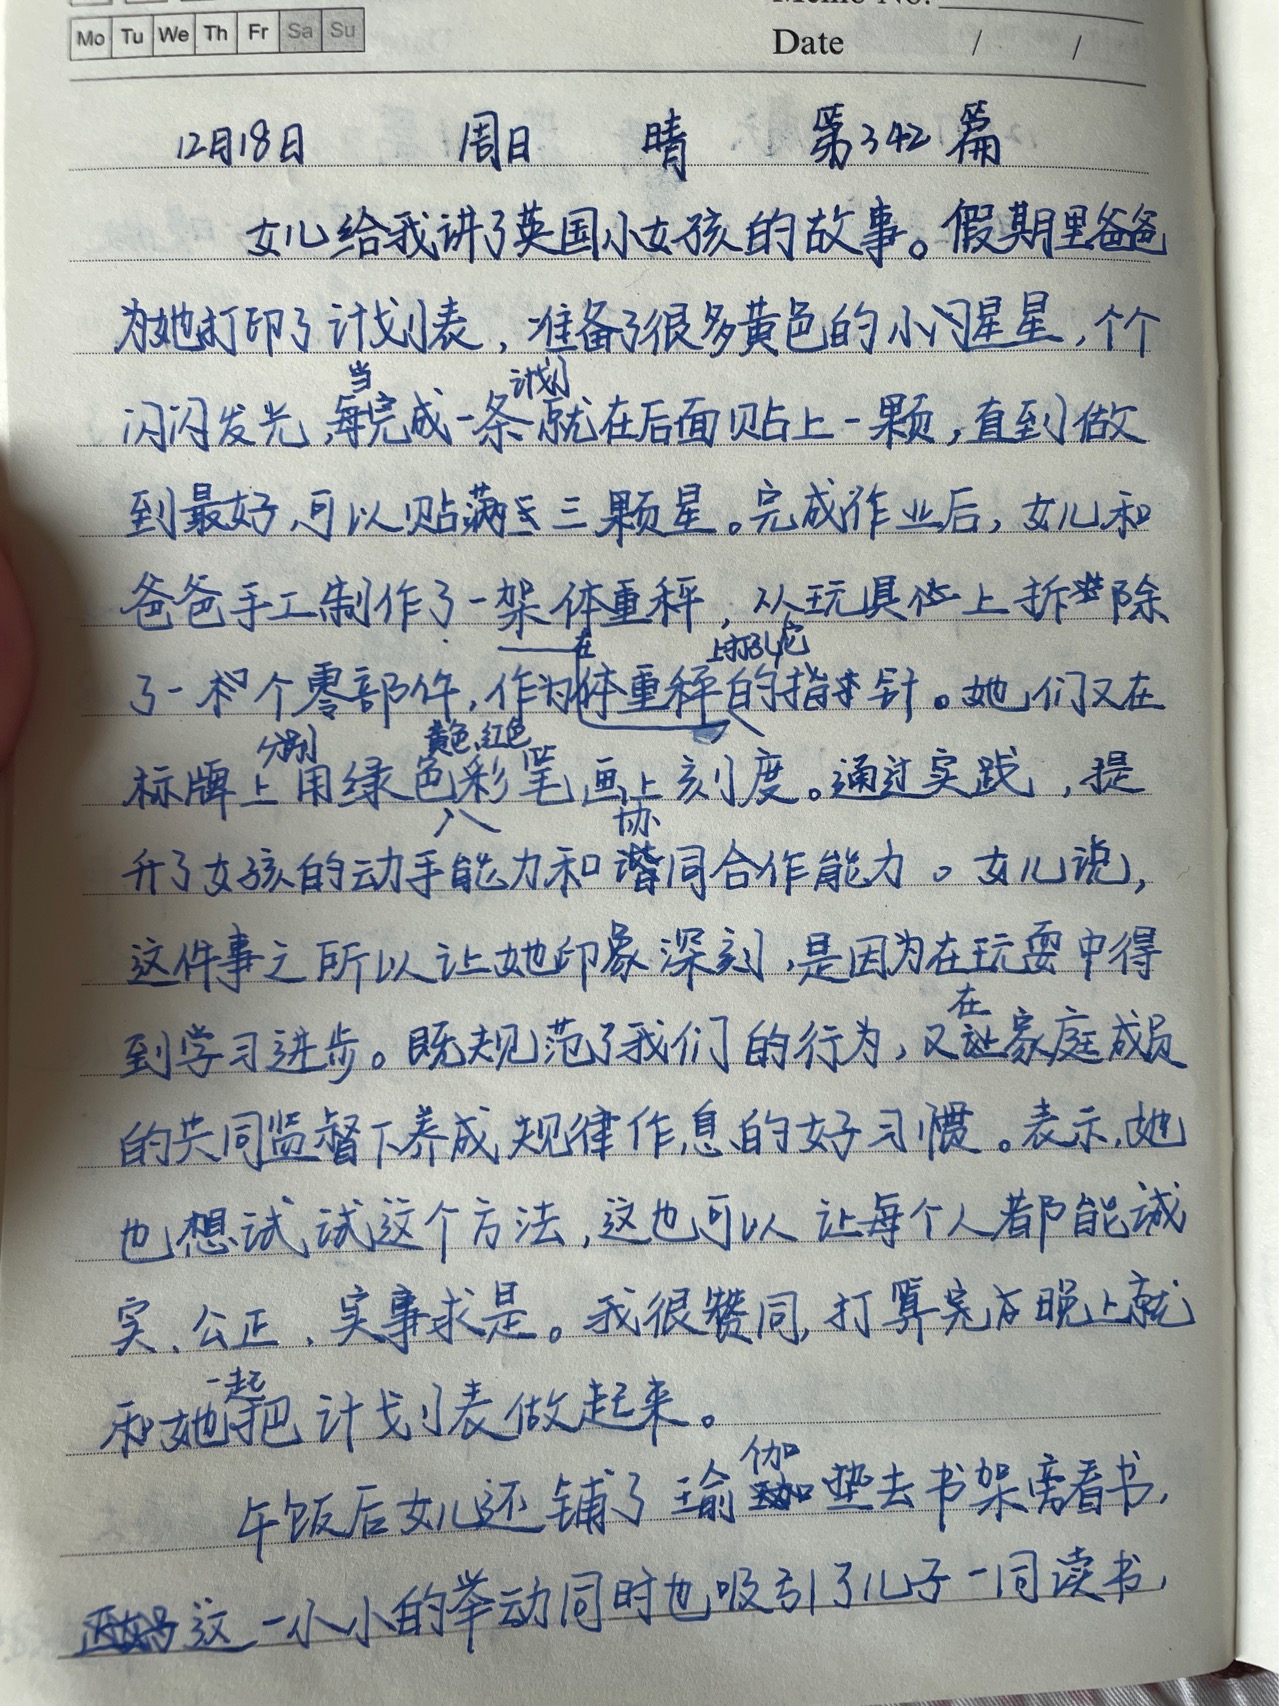 Memo No.
Mo Tu We Th Fr Sa Su
Date / /
12月18日 周日 晴 第342篇
女儿给我讲了英国小女孩的故事。假期里爸爸
为她打印了计划表，准备了很多黄色的小闪星星，个个
闪闪发光，每当完成一条计划就在后面贴上一颗，直到做
到最好，可以贴满三颗星。完成作业后，女儿和
爸爸手工制作了一架体重秤，从玩具上拆除
了一个零部件，作为在体重秤上打孔它的指针。她们又在
标牌上分别用绿色、黄色、红色彩笔画上刻度。通过实践，提
升了女孩的动手能力和协同合作能力。女儿说，
这件事之所以让她印象深刻，是因为在玩耍中得
到学习进步。既规范了我们的行为，又在家庭成员
的共同监督下养成规律作息的好习惯。表示，她
也想试试这个方法，这也可以让每个人都能诚
实、公正、实事求是。我很赞同，打算完成晚上就
和她一起把计划表做起来。
午饭后女儿还铺了瑜伽垫去书架旁看书，
这一小小的举动同时也吸引了儿子一同读书，